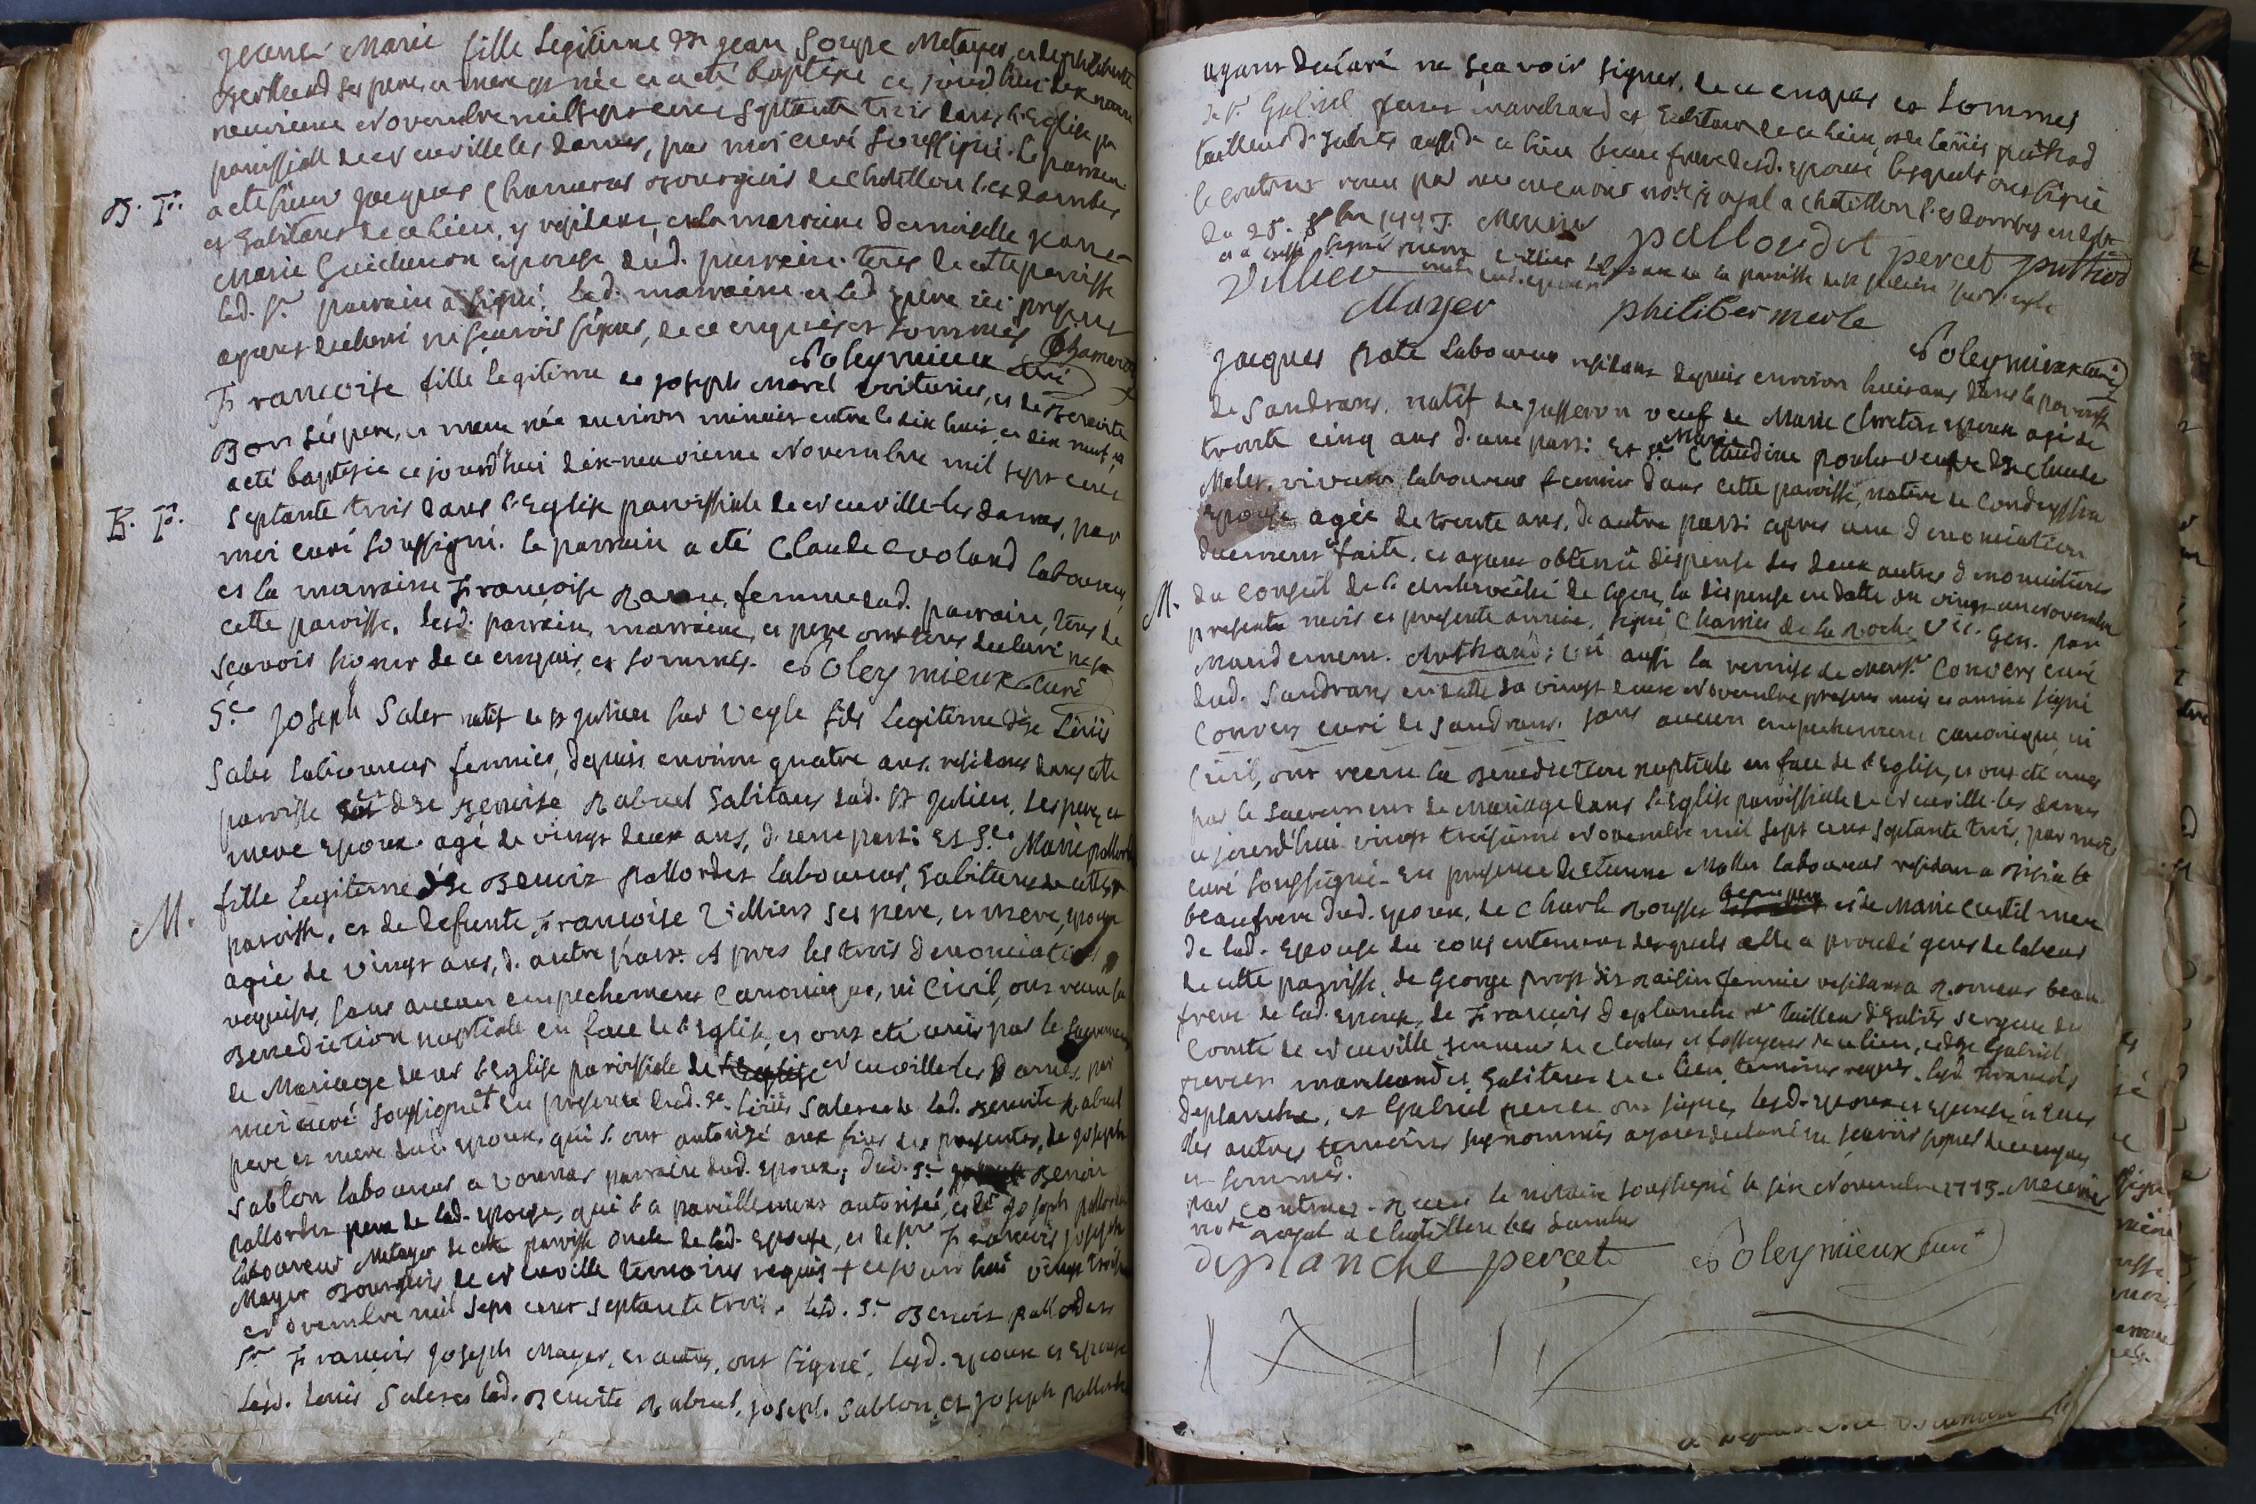 Jeane Marie fille legitime de jean Goyne Metayer, et de philiberte
ses pere et mere née et a été baptisée ce jourd'hui dix neuf
neuvieme Novembre mil sept cent septante trois dans l'Eglise
paroissiale de Neuville les dames, par moi curé soussigné. le parrain
B. Pt.
a été sieur jacques Chamerat Bourgeois de Chatillon les dombes
et habitant de ce lieu, y residant, et la marraine demoiselle jeane
Marie Guichenon epouse dud. parrain. tous de cette paroisse
led. Sr. parrain a signé, lad. marraine et led. pere ici present
ayant declaré ne sçavoir signer, de ce enquis et sommés Chamerat
Noleymieux curé
Francoise fille legitime de joseph Morel voiturier, et de Benoite
Bon ses pere, et mere née environ minuit entre le dix huit, et dix neuf, et
a eté baptisée ce jourd'hui dix-neuvieme Novembre mil sept cent
B. Pt.
septante trois dans l'Eglise paroissiale de Neuville-les dames, par
moi curé soussigné. le parrain a eté Claude Voland laboureur,
et la marraine Francoise femme dud. parrain, tous de
cette paroisse. lesd. parrain, marraine, et pere ont tous declaré ne
sçavoir signer de ce enquis, et sommés. Noleymieux curé
Sr. Joseph Salet natif de St julien sur Veyle fils legitime de Sr Loüis
Salet laboureur fermier, depuis environ quatre ans residant dans cette
paroisse et de Benoite Rabuel habitant dud. St julien, ses pere et
mere epoux agé de vingt deux ans, d'une part: Et Se. Marie pallordet
M.
fille legitime de Sr Benoit pallordet laboureur, habitant de cette
paroisse, et de defunte Francoise Villiers ses pere, et mere, epouse
agée de vingt ans, d. autre part. Apres les trois denonciations
requises, sans aucun empechement canonique, ni civil, ont receu la
Benediction nuptiale en face de l'Eglise, et ont eté unis par le sacrement
de Mariage dans l'Eglise paroissiale de Neuville les Dames, par
moi curé soussigné et en presence dud. Sr. Loüis Salet et de lad. Benoite Rabuel
pere et mere dud. epoux, qui l. ont autorisé aux fins des presentes, de joseph
Sablon laboureur a Vonnas parrain dud. epoux; dud. Sr. Benoit
pallordet pere de lad. epouse, qui l'a pareillement autorisée, et de joseph pallordet
laboureur Metayer de cette paroisse oncle de lad. epouse, et de Sr. Francois joseph
Mayer Bourgeois de Neuville temoins requis + ce jourd'hui vingt trois
Novembre mil sept cent septante trois. led. Sr. Benoit pallordet
Sr. Francois joseph Mayer, et autres, ont signé, lesd. epoux et epouse
lesd. Louis Salet et lad. Benoite Rabuel, joseph Sablon, et joseph pallordet
ayant declaré ne sçavoir signer, de ce enquis et sommés
de Sr. Gabriel percet marchand et habitant de ce lieu, et de Loüis puthod
tailleur d'habits aussi de ce lieu beau frere desd. epoux lesquels ont signé
le contrat receu par me mercier notre. royal a chatillon les dombes en date
du 25. 8bre 1773. Mercier pallordet percet puthod
et a aussi signé pierre villier de la paroisse de St julien sur veyle
Villier
Mayer philiber merle
Noleymieux curé
Jacques laboureur residant depuis environ huit ans dans la paroisse
de Sandrans, natif de Jasseron veuf de Marie Chretin epoux agé de
trente cinq ans d'une part: Et Se. Marie Claudine poulet veuve de Claude
Molet, vivant laboureur fermier dans cette paroisse, native de Condeyssia
epouse agée de trente ans, d. autre part: apres une denonciation
duement faite, et ayant obtenu dispense des deux autres denonciations
M.
du conseil de l'Archeveché de Lyon, la dispense en datte du vingt un novembre
present mois et presente année, signé Charrier de la Roche Vic. Gen. par
Mandement. Arthaud; vû aussi la remise de Mersr. Convers curé
dud. Sandrans en datte du vingt deux Novembre present mois et année signé
Convers curé de Sandrans. sans aucun empechement canonique, ni
Civil, ont receu la Benediction nuptiale en face de l'Eglise, et ont eté unis
par le sacrement de Mariage dans l'Eglise paroissiale de Neuville-les dames
ce jourd'hui vingt troisieme Novembre mil sept cent septante trois, par moi
curé soussigné. En presence d'etienne Mollet laboureur residant a
beaufrere dud. epoux, de Charle Rousset beau pere et de Marie Curtil mere
de lad. epouse du consentement desquels elle a procedé gens de labeur
de cette paroisse, de George prost dit Raisin fermier residant a Romans beau
frere de lad. epouse, de Francois Deplanche tailleur d'habits sergent du
Comté de Neuville, sonneur de cloches et fossoyeur de ce lieu, et de Sr Gabriel
percet marchand et habitant de ce lieu temoins requis. lesd. Francois
Deplanche, et Gabriel percet ont signé, lesd. epoux et epouse, et tous
les autres temoins susnommés ayant declaré ne sçavoir signer de ce enquis
et sommés.
par contrat receu le notaire soussigné le six Novembre 1773. Mercier
notre royal a Chatillon les dombes
deplanche percet Noleymieux curé